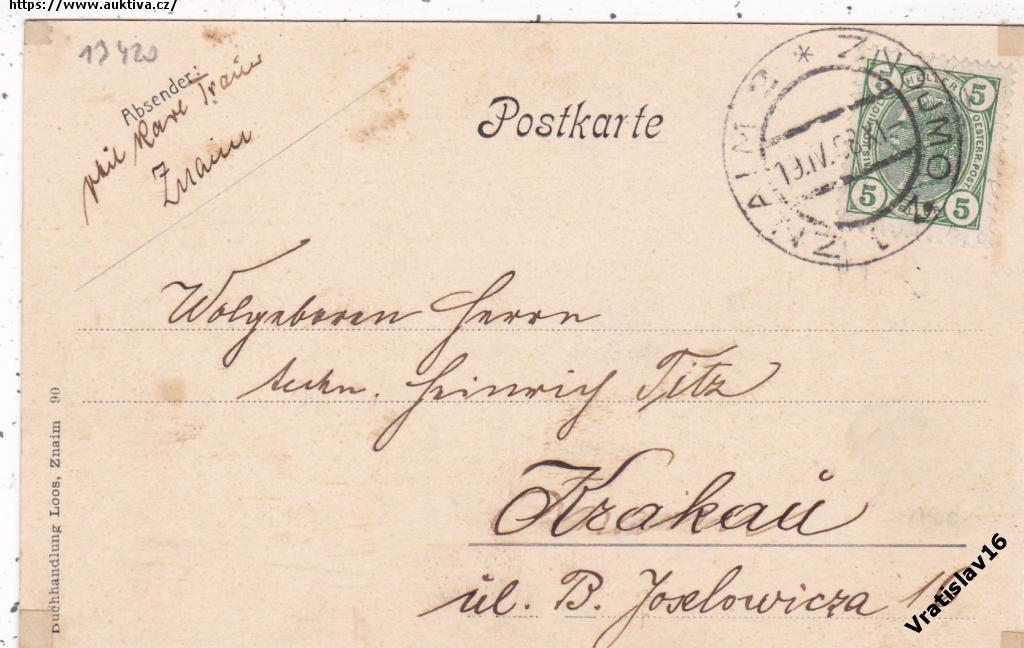 https://www.auktiva.cz/
13420
Absender:
phil Karl
Znaim
Postkarte
ZNOJMO
ZNAIM 2
19.IV.
HELLER
OESTERR. POST.
5
5
5
Wolgeboren Herrn
techn. Heinrich Titz
Krakau
ul. B. Joselowicza
Buchhandlung Loos, Znaim 90
Vratislav16